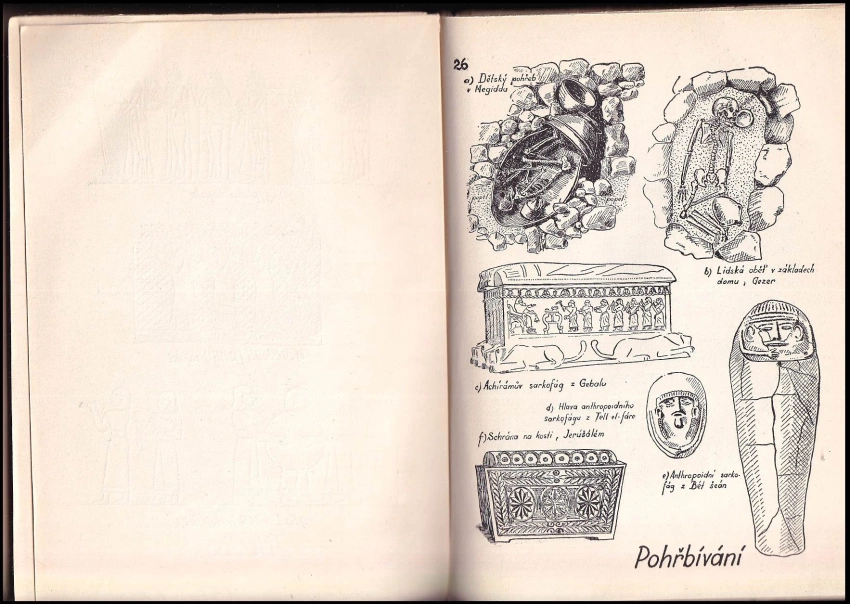 26
a) Dětský pohřeb
v Megiddu
b) Lidská oběť v základech
domu, Gezer
c) Achírámův sarkofág z Gebalu
d) Hlava anthropoidního
sarkofágu z Tell el-fáre
f) Schrána na kosti, Jerúšálém
e) Anthropoidní sarko-
fág z Bét šeán
Pohřbívání